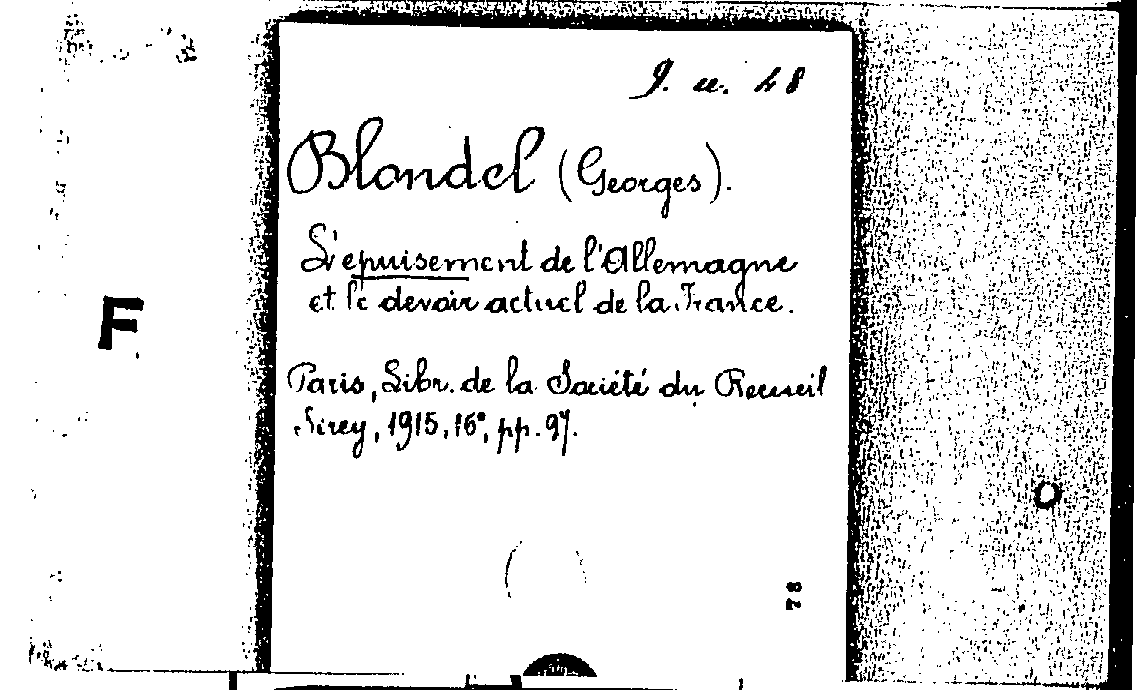 J. u. 48
Blondel (Georges).
L'epuisement de l'Allemagne
et le devoir actuel de la France.
Paris, Libr. de la Société du Recueil
Sirey, 1915, 16°, pp. 97.
F
O
78